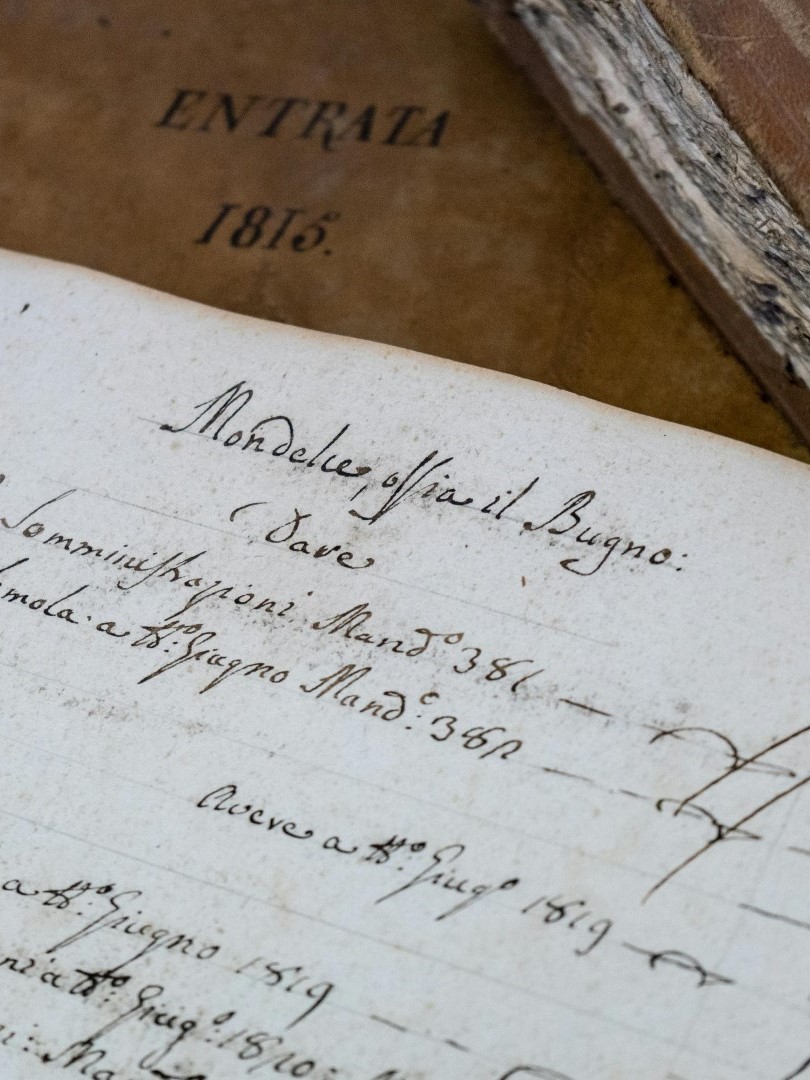 ENTRATA
1815.
Mondelce, ossia il Bugno:
Dare
Somministrazioni Mand.o 381
a tt.o Giugno Mand.o: 382
Avere a tt.o Giug.o 1819
a tt.o Giugno 1819
a tt.o Giug.o: 1820: